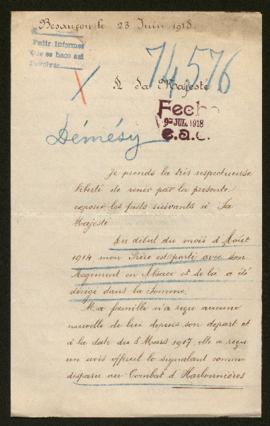 Besançon le 23 Juin 1918
Pedir informes
que se hace así
74576
A Sa Majesté
Fecha
9 JUL. 1918
e.a.c.
Démésy
Je prends la très respectueuse
liberté de venir par la présente
exposer les faits suivants à Sa
Majesté
Au début du mois d'Août
1914 mon Frère est parti avec son
Régiment en Alsace et de là a été
dirigé dans la Somme.
Ma famille n'a reçu aucune
nouvelle de lui depuis son départ et
à la date du 5 Mars 1917 elle a reçu
un avis officiel le signalant comme
disparu au Combat d'Harbonnières